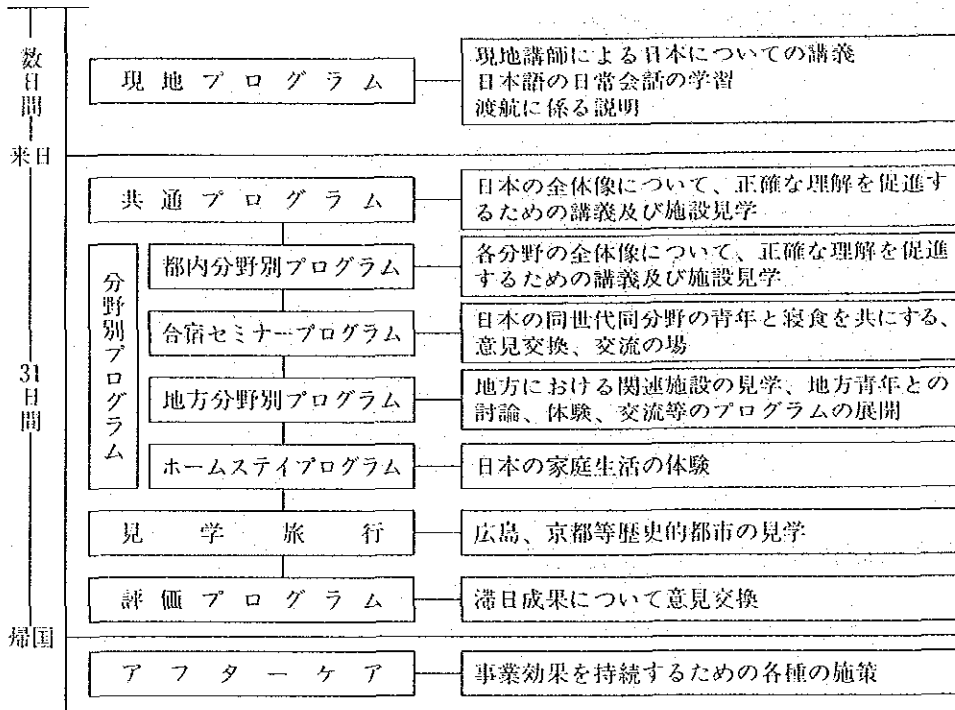 数日間
現地プログラム
現地講師による日本についての講義
日本語の日常会話の学習
渡航に係る説明
来日
31日間
共通プログラム
日本の全体像について、正確な理解を促進す
るための講義及び施設見学
分野別プログラム
都内分野別プログラム
各分野の全体像について、正確な理解を促進
するための講義及び施設見学
合宿セミナープログラム
日本の同世代同分野の青年と寝食を共にする、
意見交換、交流の場
地方分野別プログラム
地方における関連施設の見学、地方青年との
討論、体験、交流等のプログラムの展開
ホームステイプログラム
日本の家庭生活の体験
見学旅行
広島、京都等歴史的都市の見学
評価プログラム
滞日成果について意見交換
帰国
アフターケア
事業効果を持続するための各種の施策